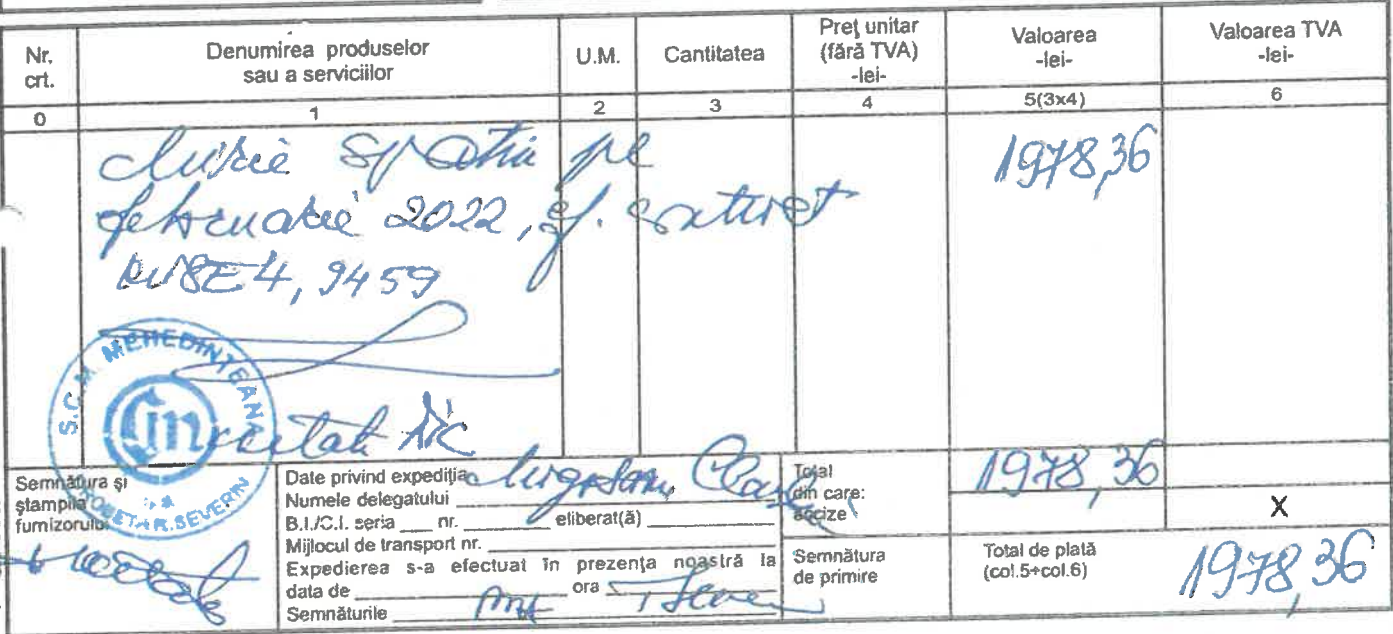 Nr. crt.
Denumirea produselor sau a serviciilor
U.M.
Cantitatea
Preţ unitar (fără TVA) -lei-
Valoarea -lei-
Valoarea TVA -lei-
0 1 2 3 4 5(3x4) 6
spatiu pe 1978,36
februarie 2022, cf. contract
4,9459
S.C.M. MEHEDINŢEANA
DROBETA TR. SEVERIN
Semnătura şi
ştampila
furnizorului
Date privind expediţia
Numele delegatului
B.I./C.I. seria ___ nr. ________ eliberat(ă) ________
Mijlocul de transport nr.
Expedierea s-a efectuat în prezenţa noastră la
data de ________ ora ________
Semnăturile
Total 1978,36
din care:
accize X
Semnătura
de primire
Total de plată
(col.5+col.6) 1978,36